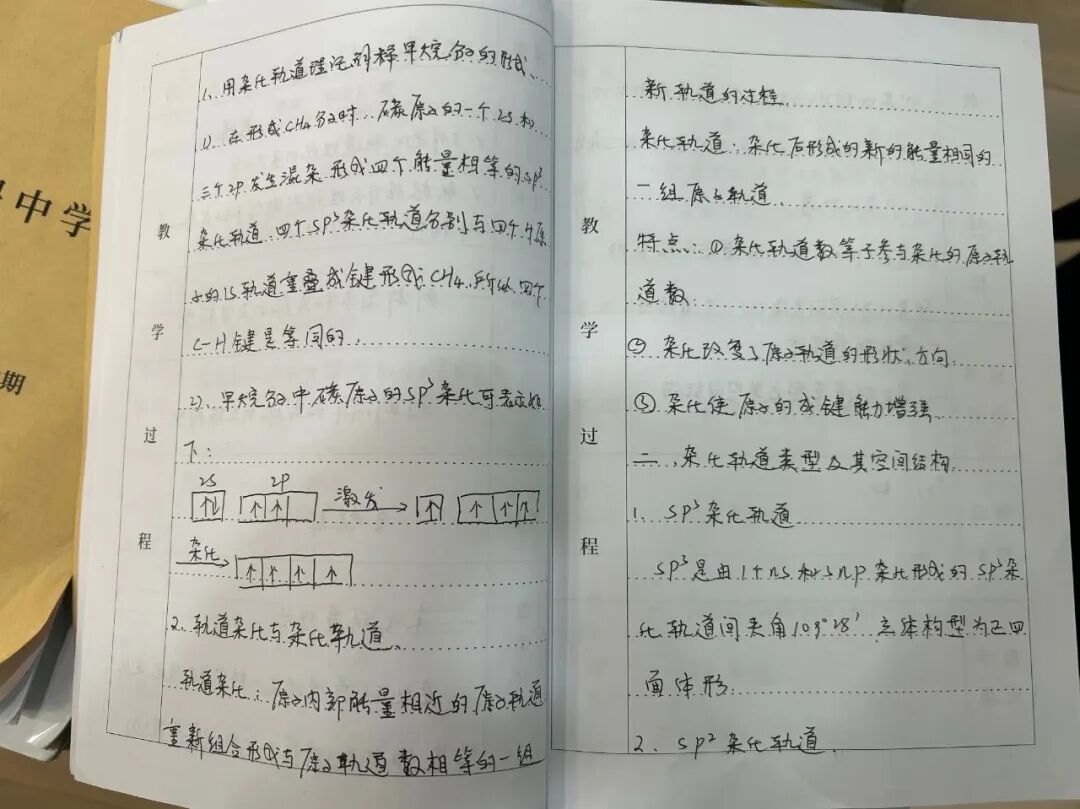 中学
期
教学过程
1、用杂化轨道理论解释甲烷分子的形成、
1)、在形成CH4分子时、碳原子的一个2S和
三个2P发生混杂形成四个能量相等的SP³
杂化轨道、四个SP³杂化轨道分别与四个H原
子的1S轨道重叠成键形成CH4、所以四个
C-H键是等同的、
2)、甲烷分子中碳原子的SP³杂化可表示如
下：
2S 2P
↑↓ ↑ ↑ 激发 ↑ ↑ ↑ ↑
杂化 ↑ ↑ ↑ ↑
2、轨道杂化与杂化轨道、
轨道杂化：原子内部能量相近的原子轨道
重新组合形成与原子轨道数相等的一组
教学过程
新轨道的过程
杂化轨道：杂化后形成的新的能量相同的
一组原子轨道、
特点：①杂化轨道数等于参与杂化的原子轨
道数
② 杂化改变了原子轨道的形状、方向
③ 杂化使原子的成键能力增强
二、杂化轨道类型及其空间结构
1、SP³杂化轨道
SP³是由1个ns和3np杂化形成的SP³杂
化轨道间夹角109°28′ 立体构型为正四
面体形
2、SP²杂化轨道、